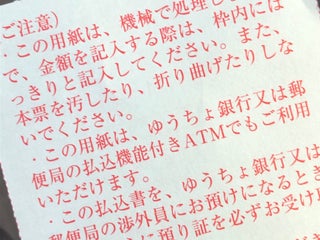 ご注意）
・この用紙は、機械で処理しま
で、金額を記入する際は、枠内に
っきりと記入してください。また、
本票を汚したり、折り曲げたりしな
いでください。
・この用紙は、ゆうちょ銀行又は郵
便局の払込機能付きATMでもご利用
いただけます。
・この払込書を、ゆうちょ銀行又は
郵便局の渉外員にお預けになるとき
預り証を必ずお受け